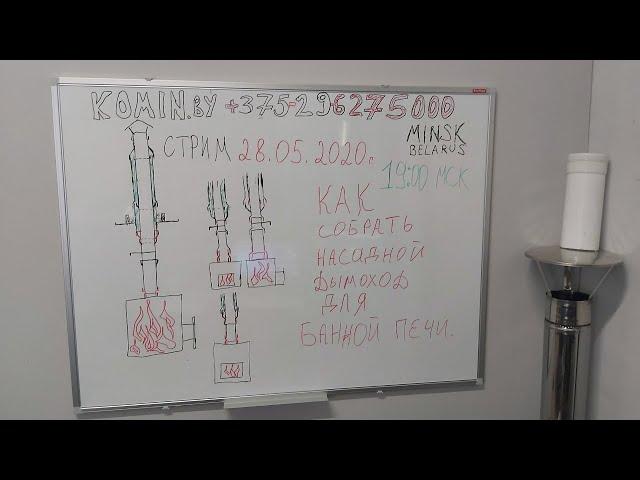 KOMIN.BY +375-29-6275000
MINSK
BELARUS
СТРИМ 28.05.2020г.
19:00 МСК
КАК
СОБРАТЬ
НАСАДНОЙ
ДЫМОХОД
ДЛЯ
БАННОЙ ПЕЧИ.